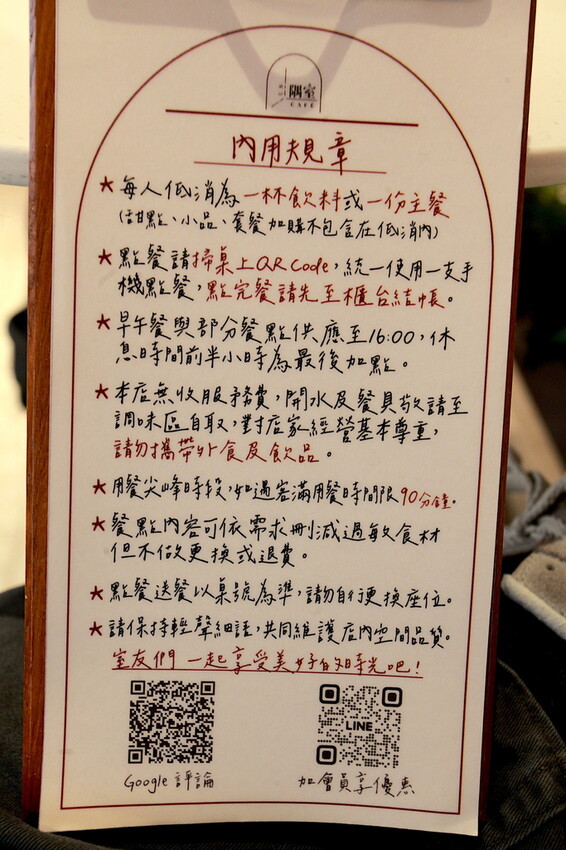 隅室
CAFE
內用規章
★每人低消為一杯飲料或一份主餐
(甜點、小品、套餐加購不包含在低消內)
★點餐請掃桌上QR Code,統一使用一支手
機點餐,點完餐請先至櫃台結帳。
★早午餐與部分餐點供應至16:00,休
息時間前半小時為最後加點。
★本店無收服務費,開水及餐具敬請至
調味區自取,對店家經營基本尊重,
請勿攜帶外食及飲品。
★用餐尖峰時段,如遇客滿用餐時間限90分鐘。
★餐點內容可依需求刪減過敏食材
但不做更換或退費。
★點餐送餐以桌號為準,請勿自行更換座位。
★請保持輕聲細語,共同維護店內空間品質。
室友們 一起享受美好的時光吧!
LINE
Google 評論
加會員享優惠